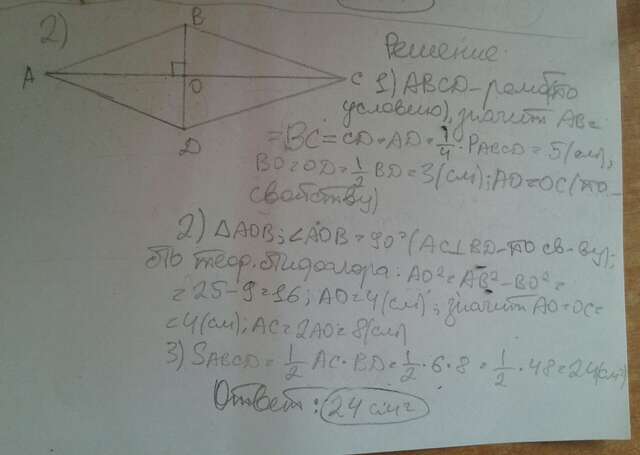 2)
B
A
O
C
D
Решение:
1) ABCD – ромб (по
условию), значит AB =
= BC = CD = AD = 1/4 · PABCD = 5 (см),
BO = OD = 1/2 BD = 3 (см); AO = OC (по
свойству)
2) △AOB; ∠AOB = 90° (AC⊥BD – по св-ву);
по теор. Пифагора: AO² = AB² – BO² =
= 25 – 9 = 16; AO = 4 (см); значит AO = OC =
= 4 (см); AC = 2AO = 8 (см)
3) SABCD = 1/2 AC · BD = 1/2 · 6 · 8 = 1/2 · 48 = 24 (см²)
Ответ: 24 см²